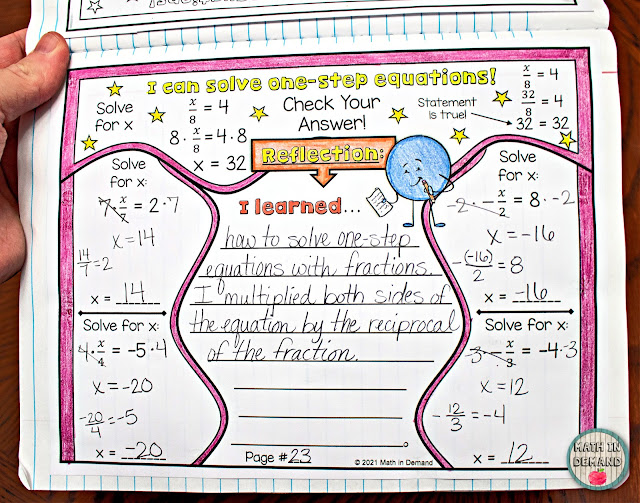 I can solve one-step equations!
Solve
for x
x/8 = 4
8 · x/8 = 4 · 8
x = 32
Check Your
Answer!
Statement
is true!
x/8 = 4
32/8 = 4
32 = 32
Reflection:
I learned...
how to solve one-step
equations with fractions.
I multiplied both sides of
the equation by the reciprocal
of the fraction.
Solve
for x:
7 · x/7 = 2 · 7
x = 14
14/7 = 2
x = 14
Solve for x:
4 · x/4 = -5 · 4
x = -20
-20/4 = -5
x = -20
Solve
for x:
-2 · -x/2 = 8 · -2
x = -16
-(-16)/2 = 8
x = -16
Solve for x:
-3 · -x/3 = -4 · -3
x = 12
-12/3 = -4
x = 12
Page #23
© 2021 Math in Demand
MATH IN
DEMAND